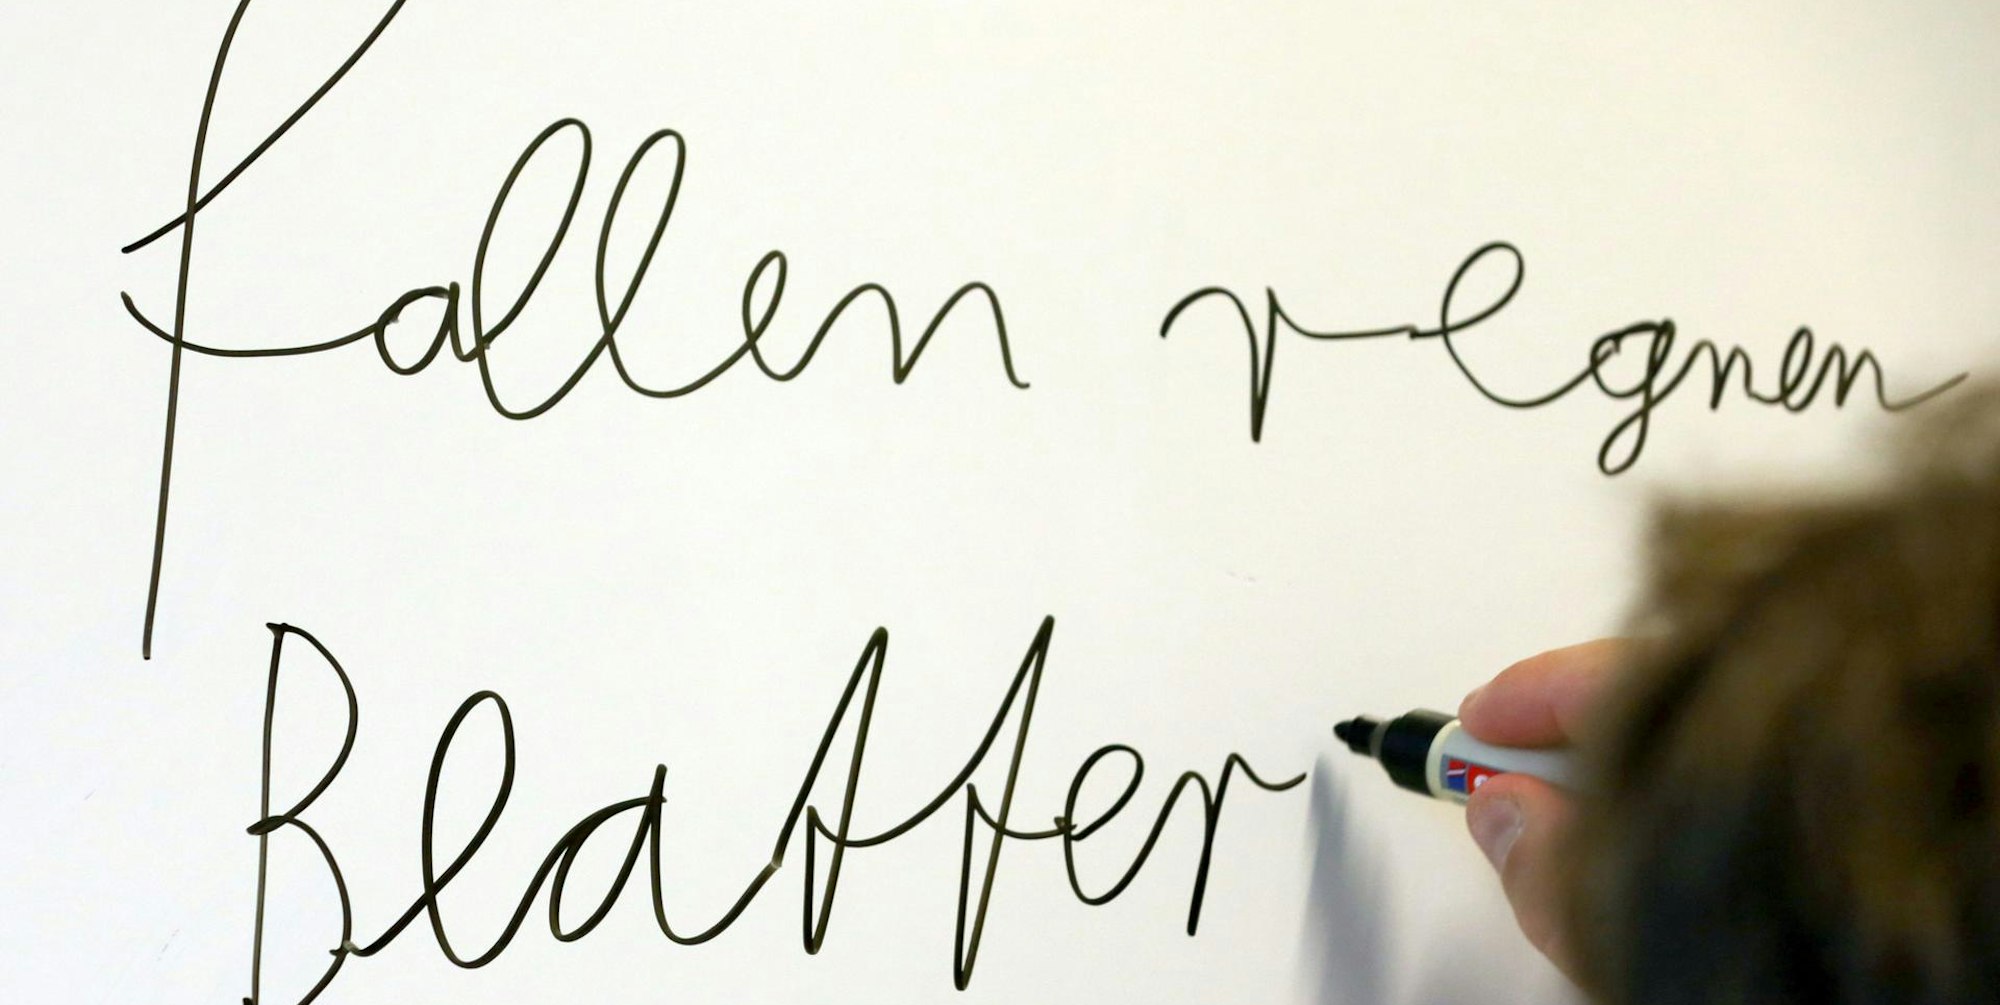 fallen regnen
Blatter